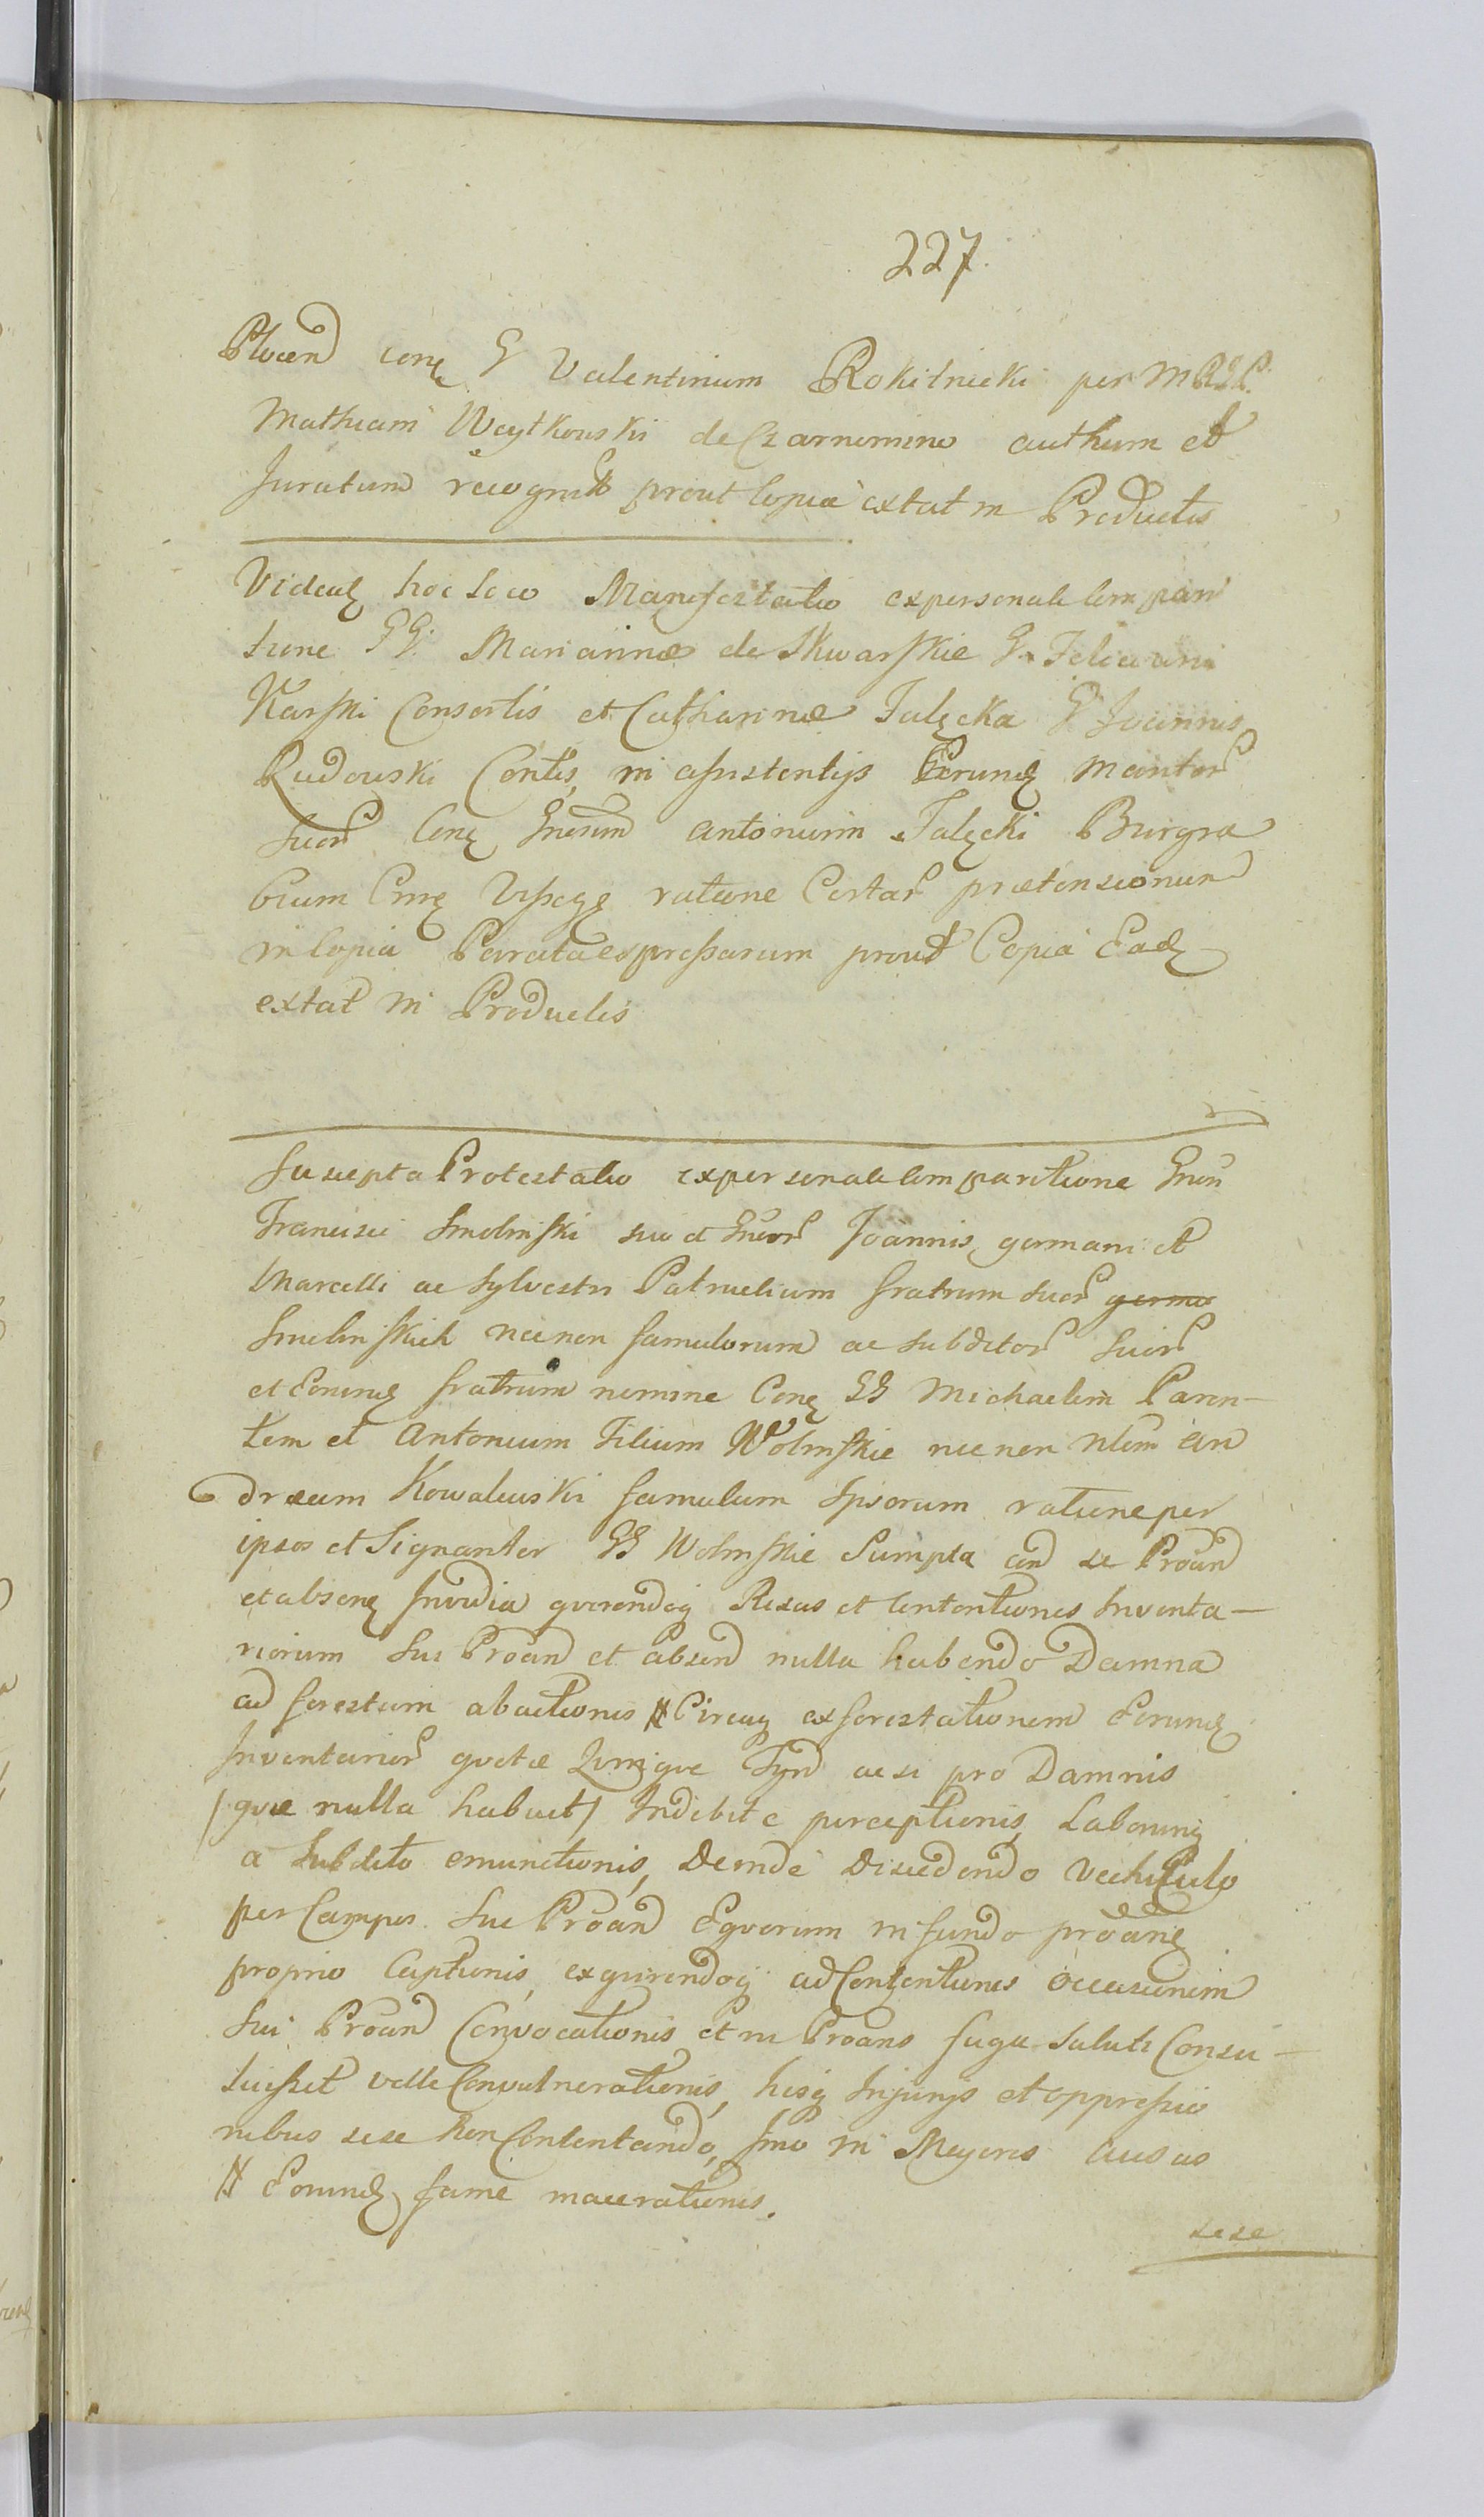 227.
Plocen conq G Valentinum Rokitnicki per M
Mathiam Woytkowski de Czarnomino authum et
Juratum recognit prout Copia extat in Productis
Videatq hoc loco Manifestatio ex personali Compari
tione GG. Mariannæ de Skwarskie G. Feliciani
Karski Consortis et Catharinæ Falęcka G Joannis
Rudowski Contis, in assistentijs Earundq Maritor
suor Conq Gnosum Antonium Falęcki Burgra
bium ratione Certar prætensionum
in Copia Parata expressarum prout Copia Eadq
extat in Productis
Suscepta Protestatio ex personali Comparitione Gnsi
Francisci Smolinski suo et Gnsor Joannis, germani et
Marcelli ac Sylvestri Patruelium fratrum suor germa
Smolinskich necnon famulorum ac subditor suor
et Eorundq fratrum nomine Conq GG Michaelem Paren-
tem et Antonium Filium Wolinskie necnon Nlem An
dræam Kowalewski famulum Ipsorum ratione per
ipsos et Signanter GG Wolinskie Sumpta ad se Proan
et absenq Invidia qverendoq Rixas et Contentiones Inventa-
riorum Sui Proan et absen nulla habendo Damna
ad forestum abactionis # Circaq exforestationem Eorundq
Inventarior qvotæ Tyn ac si pro Damnis
/qvæ nulla habuit/ Indebite perceptionis, Laborumq
a Subdito emunctionis, Deinde Discedendo Vechiculo
per Campos Sue Proan Eqvorum in fundo proanq
proprio Captionis, exqvirendoq ad Contentiones occasionem
Sui Proan Convocationis et ni Proans fuga Saluti Consu-
luisset velle Convulnerationis, hisq Injurijs et oppressio
nibus sese non Contentando, Imo in Majores ausus
# Eorundq fame macerationis.
sese